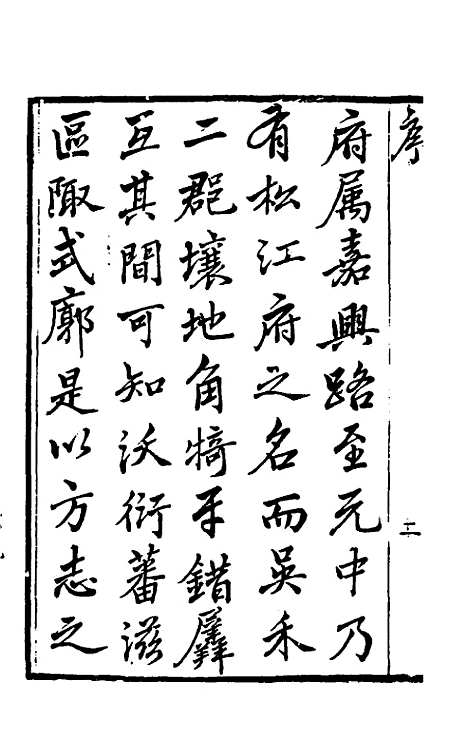 序
二
府属嘉興路至元中乃
有松江府之名而吳禾
二郡壤地角犄牙錯犀
互其間可知沃衍蕃滋
區陬式廓是以方志之